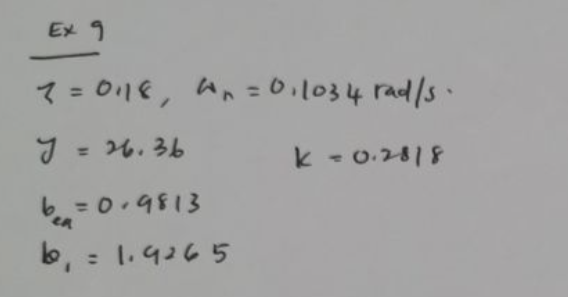 Ex 9
ζ = 0.18, ωn = 0.1034 rad/s.
y = 26.36 K = 0.2818
beq = 0.9813
b1 = 1.9265